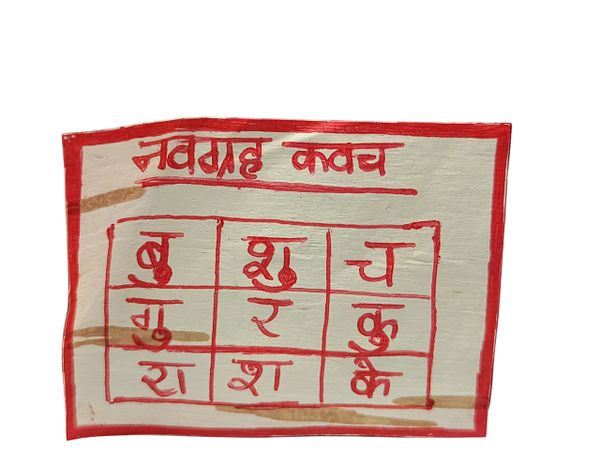 नवग्रह कवच
बु शु च
गु र कु
रा श के